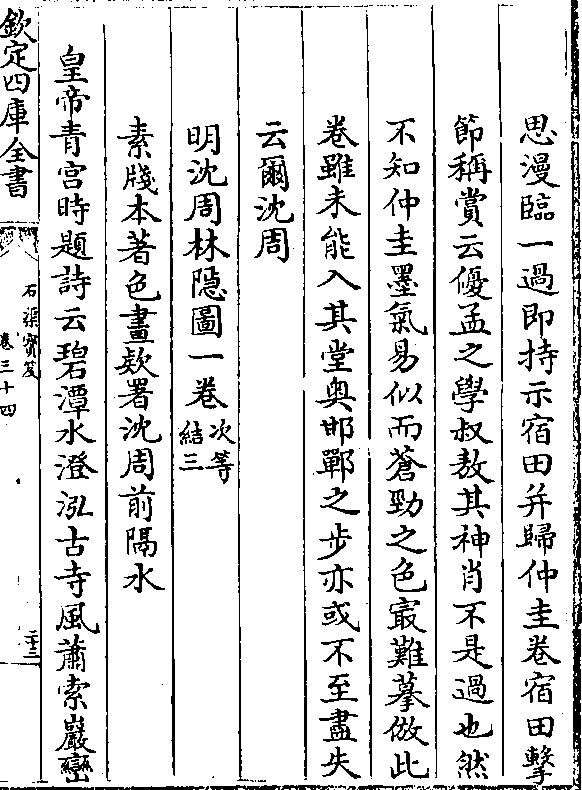 思漫臨一過即持示宿田并歸仲圭卷宿田擊
節稱賞云優孟之學叔敖其神肖不是過也然
不知仲圭墨氣易似而蒼勁之色㝡難摹倣此
卷雖未能入其堂奥邯鄲之步亦或不至盡失
云爾沈周
明沈周林隠圖一卷次等結三
素牋本著色畫欵署沈周前隔水
皇帝青宮時題詩云碧潭水澄泓古寺風蕭索巖巒
欽定四庫全書
石渠寳笈
卷三十四
二十三